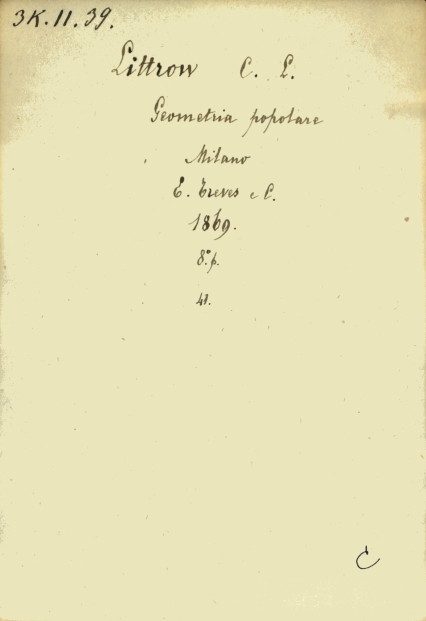 3K.11.39.
Littrow C. L.
Geometria popolare
Milano
E. Treves e C.
1869.
8.º p.
41.
C